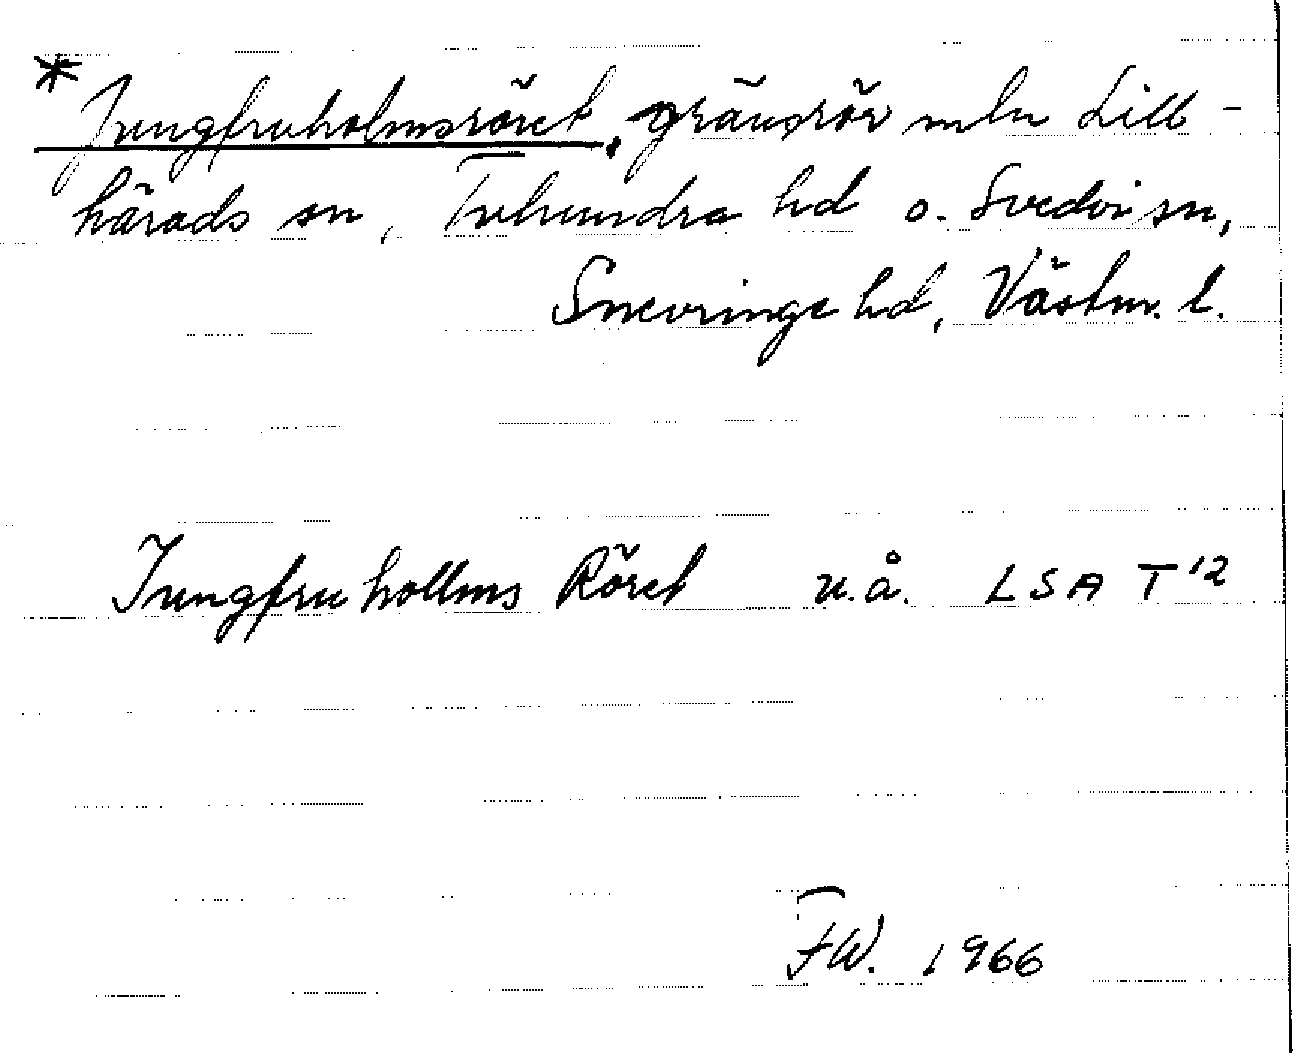 * Jungfruholmsröret, gränsrör mln Lill-
härads sn, Tuhundra hd o. Svedvi sn,
Snevringe hd, Västm. l.
Jungfru hollms Röret u.å. LSA T'12
FW. 1966